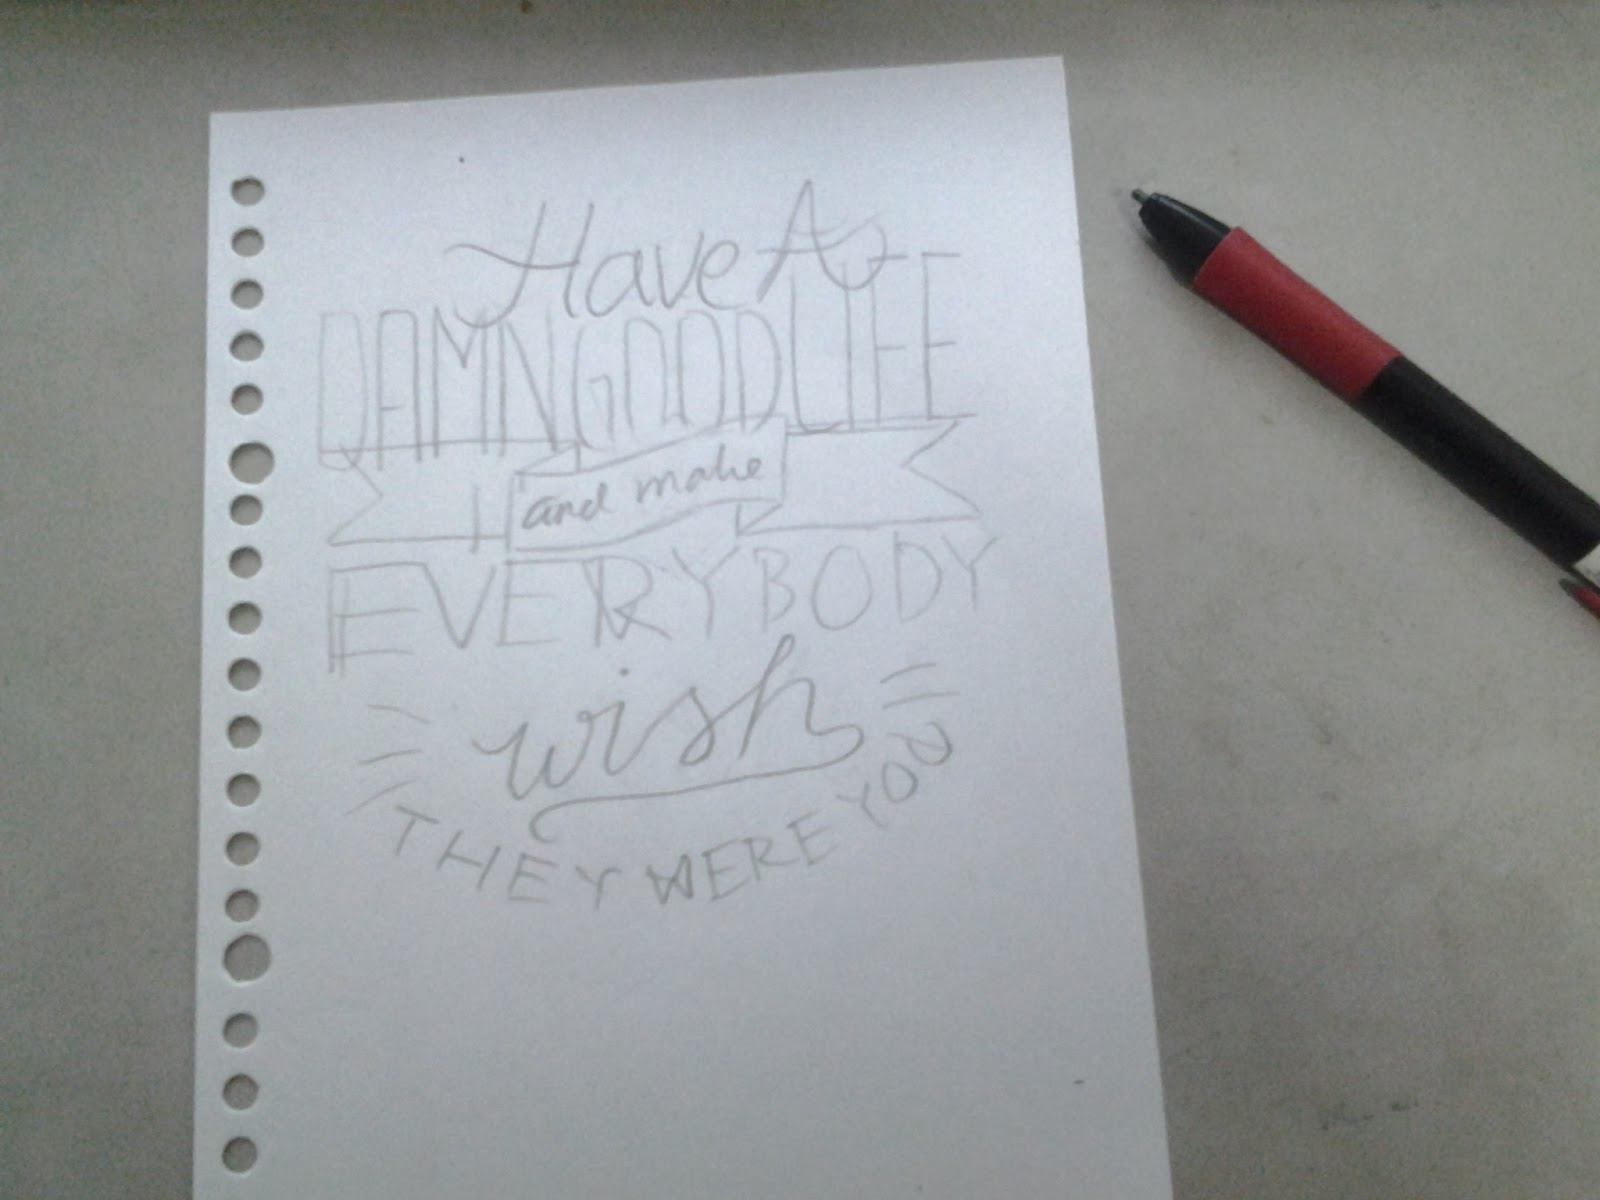 Have A
DAMN GOOD LIFE
and make
EVERYBODY
wish
THEY WERE YOU